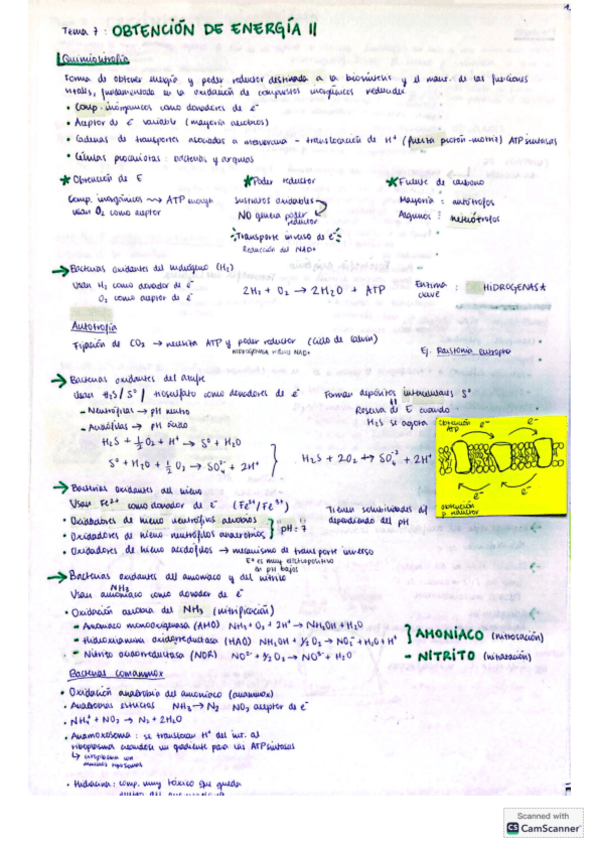 1.
Tema 7: OBTENCIÓN DE ENERGÍA II
Quimiotrofía
Forma de obtener energía y poder reductor destinada a la biosíntesis y el mant. de las funciones
vitales, fundamentado en la oxidación de compuestos inorgánicos reducidos.
• Comp. inorgánicos como donadores de e⁻
• Aceptor de e⁻ variable (mayoría aerobios)
• Cadenas de transportes asociados a membrana - translocación de H⁺ (fuerza protón-motriz) ATP sintasas
• Células procariotas: bacterias y arqueas
★ Obtención de E ★ Poder reductor ★ Fuente de carbono
Comp. inorgánicos → ATP
usan O₂ como aceptor
sustratos oxidables
NO genera poder reductor
Transporte inverso de e⁻
Reducción del NAD+
Mayoría: autótrofos
Algunos: heterótrofos
→ Bacterias oxidantes del hidrógeno (H₂)
Usan H₂ como donador de e⁻
O₂ como aceptor de e⁻
2H₂ + O₂ → 2H₂O + ATP
Enzima clave: HIDROGENAS*
Autotrofía
Fijación de CO₂ → necesita ATP y poder reductor (Ciclo de Calvin)
hidrogenasa reduce NAD+
Ej. Ralstonia eutropha
→ Bacterias oxidantes del azufre
Usan H₂S / S⁰ / tiosulfato como donadores de e⁻
Forman depósitos intracelulares S⁰
- Neutrófilas → pH neutro
- Acidófilas → pH ácido
Reserva de E cuando
H₂S se agota
H₂S + ½ O₂ + H⁺ → S⁰ + H₂O
S⁰ + H₂O + ½ O₂ → SO₄⁻² + 2H⁺
H₂S + 2O₂ → SO₄⁻² + 2H⁺
obtención ATP
e⁻ e⁻
e⁻ e⁻
obtención p. reductor
→ Bacterias oxidantes del hierro
Usan Fe²⁺ como donador de e⁻ (Fe²⁺/Fe³⁺)
• Oxidadores de hierro neutrófilos aerobios
• Oxidadores de hierro neutrófilos anaerobios
pH = 7
Tienen solubilidades dif
dependiendo del pH
• Oxidadores de hierro acidófilos → mecanismo de transporte inverso
E° es muy electropositivo
en pH bajos
→ Bacterias oxidantes del amoniaco y del nitrito
NH₃
Usan amoniaco como donador de e⁻
• Oxidación aerobia del NH₃ (nitrificación)
- Amoniaco monooxigenasa (AMO) NH₃ + O₂ + 2H⁺ → NH₂OH + H₂O
- Hidroxilamina oxidorreductasa (HAO) NH₂OH + ½ O₂ → NO₂⁻ + H₂O + H⁺
- Nitrito oxidorreductasa (NOR) NO²⁻ + ½ O₂ → NO³⁻ + H₂O
AMONÍACO (nitrosación)
- NITRITO (nitratación)
Bacterias comammox
• Oxidación anaerobia del amoniaco (anammox)
• Anaerobias estrictas NH₃ → N₂ NO₂ aceptor de e⁻
• NH₄⁺ + NO₂ → N₂ + 2H₂O
• Anamoxosoma: se translocan H⁺ del int. al
riboplasma creándose un gradiente para las ATP sintasas
↳ citoplasma con
• Hidracina: comp. muy tóxico que queda
Scanned with
CS CamScanner